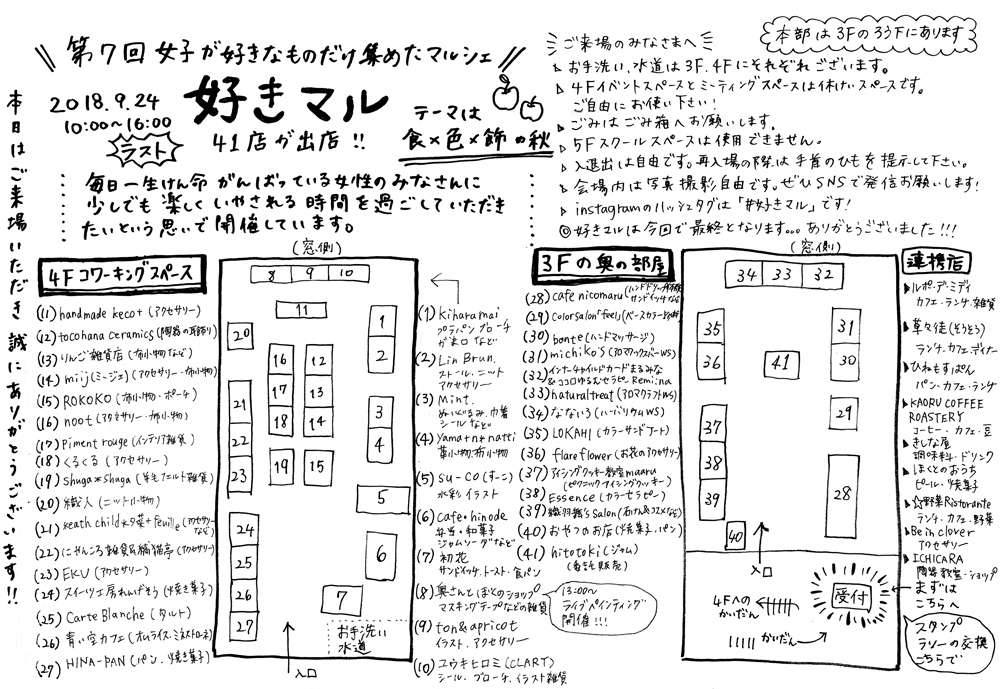 第7回 女子が好きなものだけ集めたマルシェ
好きマル
2018.9.24
10:00～16:00
ラスト
41店が出店!!
テーマは
食×色×飾の秋
毎日一生けん命 がんばっている女性のみなさんに
少しでも 楽しく いやされる 時間を過ごしていただき
たいという思いで開催しています。
本日はご来場いただき誠にありがとうございます!!
本部は3Fのろう下にあります
ご来場のみなさまへ
▷ お手洗い、水道は3F.4Fにそれぞれございます。
▷ 4Fイベントスペースとミーティングスペースは休けいスペースです。
ご自由にお使い下さい!
▷ ごみはごみ箱へお願いします。
▷ 5Fスクールスペースは使用できません。
▷ 入退出は自由です。再入場の際は手首のひもを提示して下さい。
▷ 会場内は写真撮影自由です。ぜひSNSで発信お願いします!
▷ instagramのハッシュタグは「#好きマル」です!
◎好きマルは今回で最終となります。。。ありがとうございました!!!
4Fコワーキングスペース
(11) handmade keco+ (アクセサリー)
(12) tocohana ceramics (陶器の耳飾り)
(13) りんご雑貨店 (布小物など)
(14) miij(ミージェ) (アクセサリー・布小物)
(15) ROKOKO (布小物・ポーチ)
(16) noot (アクセサリー・布小物)
(17) Piment rouge (インテリア雑貨)
(18) くるくる (アクセサリー)
(19) shuga*shuga (羊毛フェルト雑貨)
(20) 織人 (ニット小物)
(21) keath child*夕菜+feuille (アクセサリーなど)
(22) にゃんころ雑貨&編猫亭 (アクセサリー)
(23) EKU (アクセサリー)
(24) スイーツ工房れんげそう (焼き菓子)
(25) Carte Blanche (タルト)
(26) 青い空カフェ (オムライス・ミネストローネ)
(27) HINA-PAN (パン・焼き菓子)
(窓側)
8 9 10
11
20
1
2
16 12
17 13
18 14
21
22
23
3
4
19 15
5
24
25
26
27
6
7
お手洗い
水道
入口
(1) kiharamai
プラバンブローチ
がま口など
(2) Lin Brun.
ストール、ニット
アクセサリー
(3) Mint.
ぬいぐるみ、巾着
シールなど
(4) Yama+n*natti
革小物・布小物
(5) su-co (すーこ)
水彩イラスト
(6) Cafe・hinode
弁当・和菓子
ジャムソーダなど
(7) 初花
サンドイッチ・トースト・食パン
(8) 奥さんとぼくのショップ
マスキングテープなどの雑貨
(9) ton&apricot
イラスト・アクセサリー
(10) ユウキヒロミ (CLART)
シール・ブローチ・イラスト雑貨
3Fの奥の部屋
(28) cafe nicomaru (ハンドドリップ珈琲 サンドイッチなど)
(29) Colorsalon「feel」 (ベースカラー診断)
(30) bonte (ハンドマッサージ)
(31) michiko's (アロマワックスバーWS)
(32) インナーチャイルドカードまるみな
&ココロゆるむセラピー Remi:na
(33) naturaltreat (アロマクラフトWS)
(34) なないろ (ハーバリウムWS)
(35) LOKAHI (カラーサンドアート)
(36) flare flower (お花のアクセサリー)
(37) アイシングクッキー教室maaru
(ピクニックアイシングクッキー)
(38) Essence (カラーセラピー)
(39) 織羽鶴's Salon (石けん&コスメなど)
(40) おやつのお店 (焼菓子・パン)
(41) hitotoki (ジャム)
(委託販売)
13:00～
ライブペインティング
開催!!!
(窓側)
34 33 32
35
36
31
30
41
29
37
38
39
28
40
入口
受付
4Fへの
かいだん
かいだん
まずは
こちらへ
スタンプ
ラリーの交換
こちらで
連携店
▶ルポ・デ・ミディ
カフェ・ランチ・雑貨
▶草々徒(そうとう)
ランチ・カフェ・ディナー
▶ひねもすぱん
パン・カフェ・ランチ
▶KAORU COFFEE
ROASTERY
コーヒー・カフェ・豆
▶きしな屋
調味料・ドリンク
▶ぼくとのおうち
ビール・焼菓子
▶☆野菜Ristorante
ランチ・カフェ・野菜
▶Be in clover
アクセサリー
▶ICHICARA
陶芸教室・ショップ